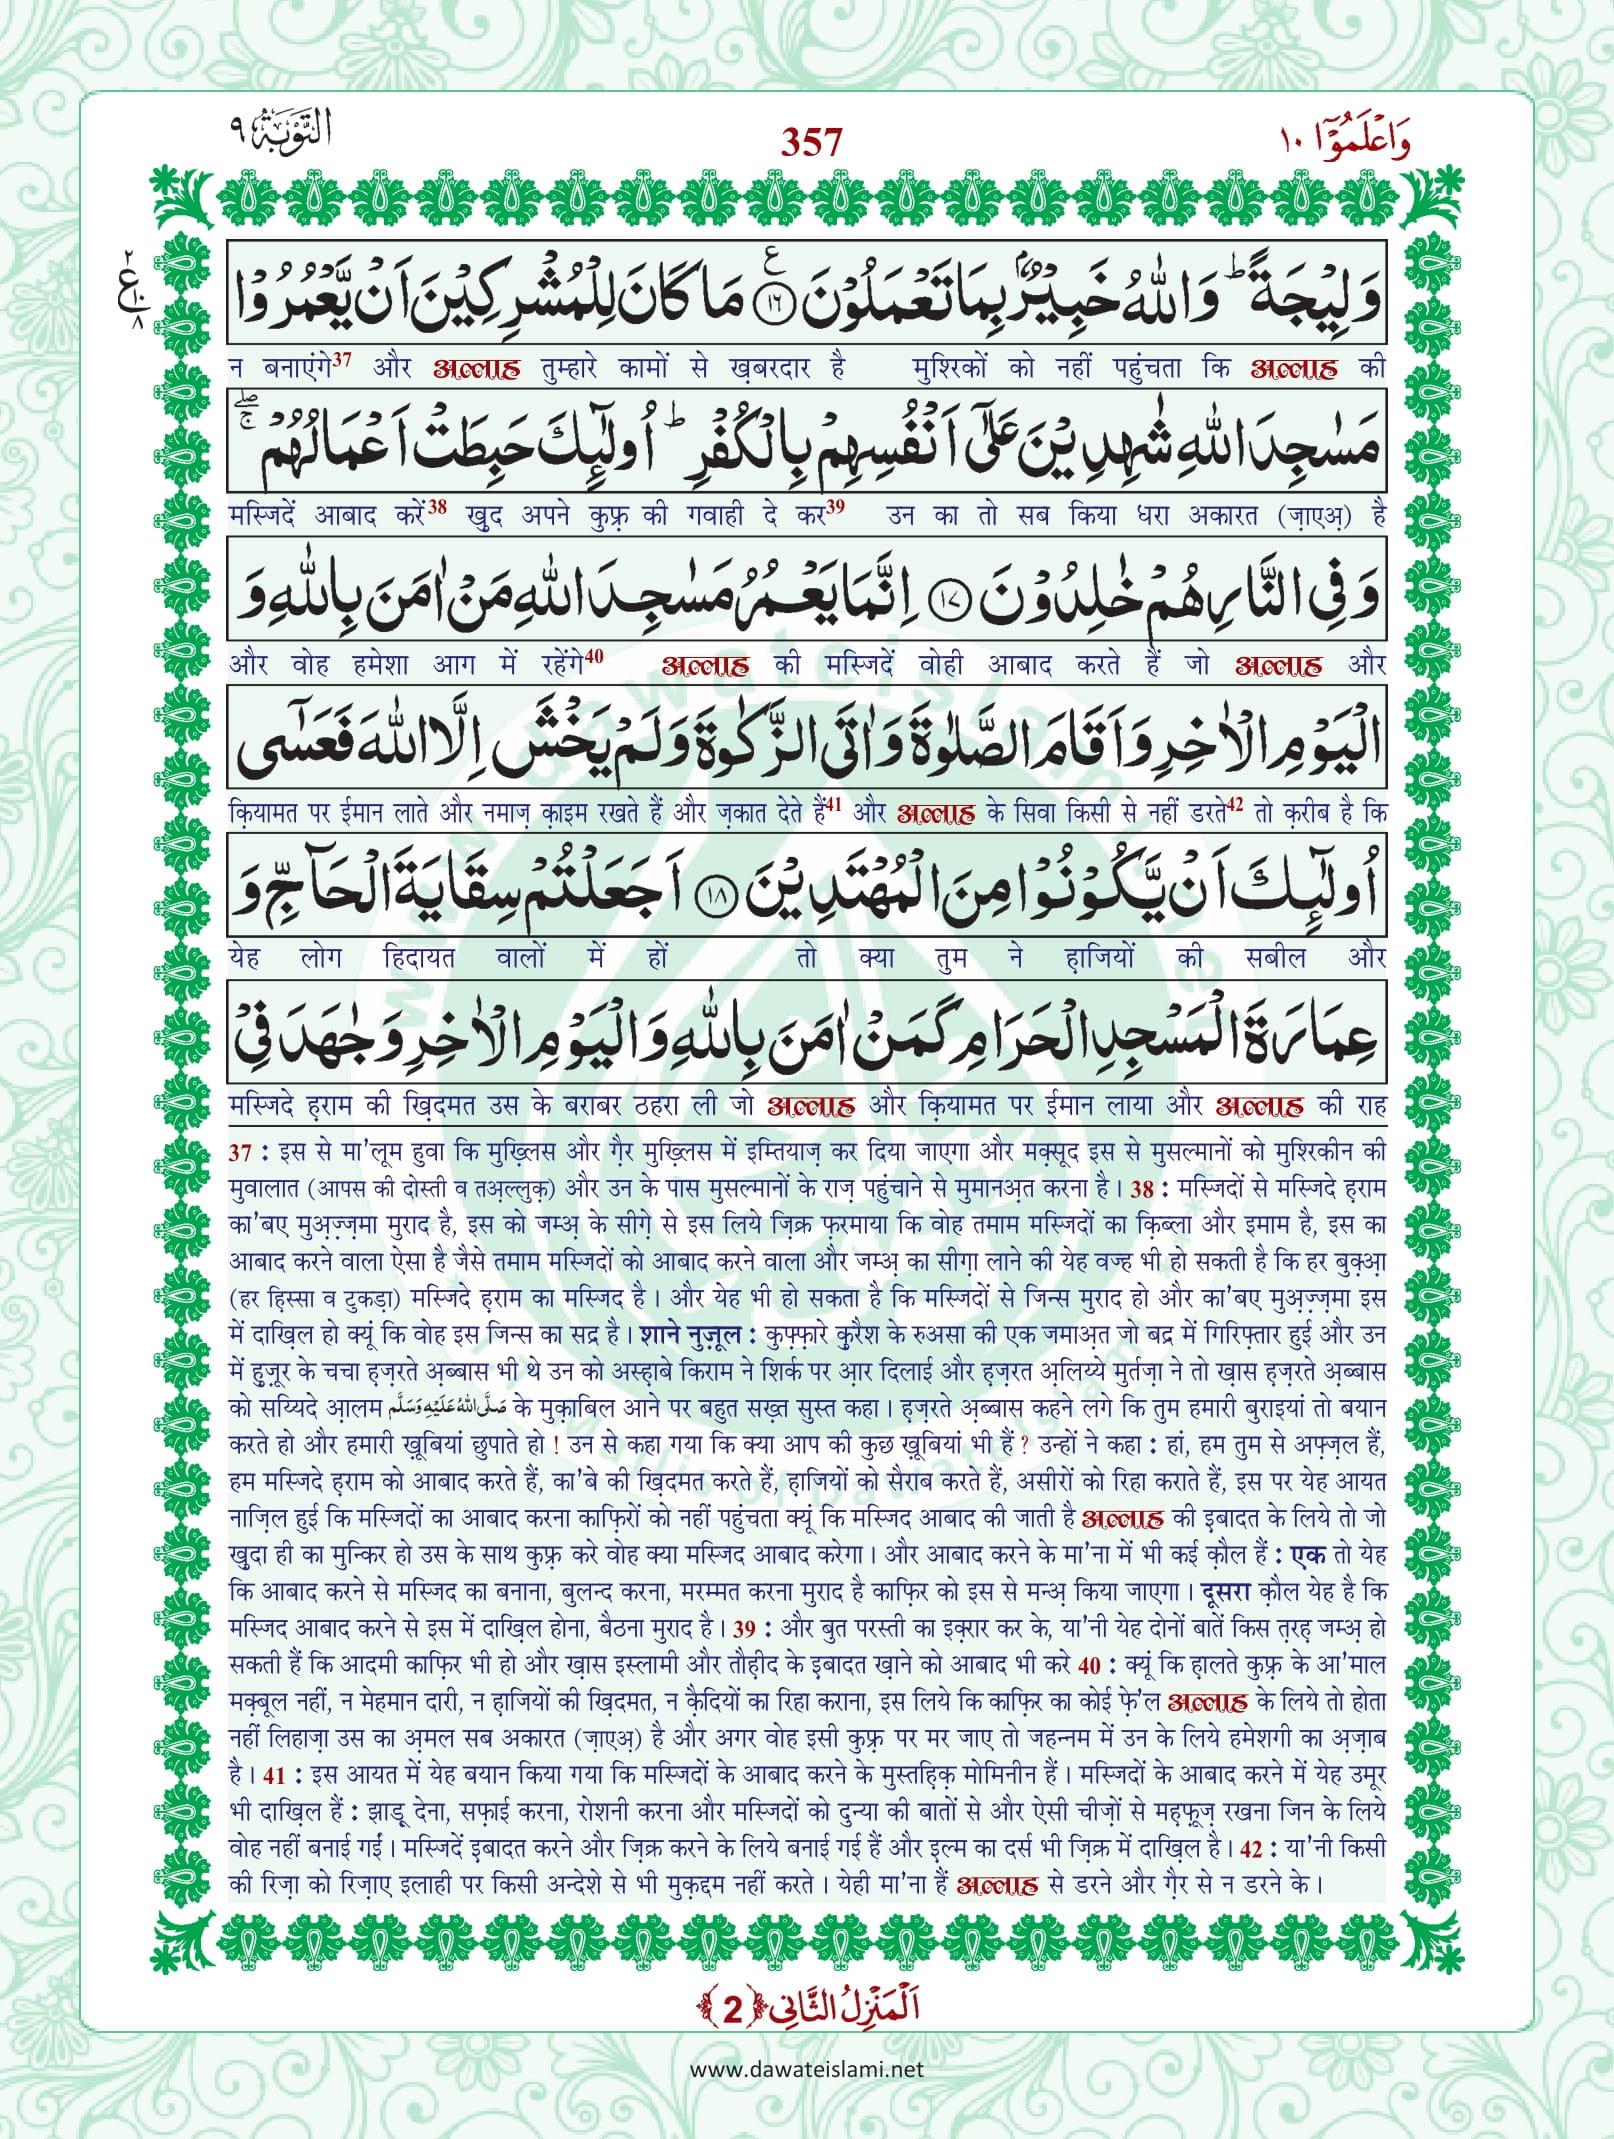 وَاعْلَمُوْۤا ١٠ 357 التَّوْبَة ٩
وَلِیْجَةً ؕ وَاللّٰهُ خَبِیْرٌۢ بِمَا تَعْمَلُوْنَ ﴿١٦﴾ مَا كَانَ لِلْمُشْرِكِیْنَ اَنْ یَّعْمُرُوْا
न बनाएंगे37 और अल्लाह तुम्हारे कामों से ख़बरदार है मुश्रिकों को नहीं पहुंचता कि अल्लाह की
مَسٰجِدَ اللّٰهِ شٰهِدِیْنَ عَلٰۤى اَنْفُسِهِمْ بِالْكُفْرِ ؕ اُولٰٓىٕكَ حَبِطَتْ اَعْمَالُهُمْ ۚۖ
मस्जिदें आबाद करें38 खुद अपने कुफ़्र की गवाही दे कर39 उन का तो सब किया धरा अकारत (ज़ाएअ़) है
وَ فِی النَّارِ هُمْ خٰلِدُوْنَ ﴿١٧﴾ اِنَّمَا یَعْمُرُ مَسٰجِدَ اللّٰهِ مَنْ اٰمَنَ بِاللّٰهِ وَ
और वोह हमेशा आग में रहेंगे40 अल्लाह की मस्जिदें वोही आबाद करते हैं जो अल्लाह और
الْیَوْمِ الْاٰخِرِ وَ اَقَامَ الصَّلٰوةَ وَ اٰتَى الزَّكٰوةَ وَ لَمْ یَخْشَ اِلَّا اللّٰهَ فَعَسٰۤى
क़ियामत पर ईमान लाते और नमाज़ क़ाइम रखते हैं और ज़कात देते हैं41 और अल्लाह के सिवा किसी से नहीं डरते42 तो क़रीब है कि
اُولٰٓىٕكَ اَنْ یَّكُوْنُوْا مِنَ الْمُهْتَدِیْنَ ﴿١٨﴾ اَجَعَلْتُمْ سِقَایَةَ الْحَآجِّ وَ
येह लोग हिदायत वालों में हों तो क्या तुम ने ह़ाजियों की सबील और
عِمَارَةَ الْمَسْجِدِ الْحَرَامِ كَمَنْ اٰمَنَ بِاللّٰهِ وَ الْیَوْمِ الْاٰخِرِ وَ جٰهَدَ فِیْ
मस्जिदे ह़राम की ख़िदमत उस के बराबर ठहरा ली जो अल्लाह और क़ियामत पर ईमान लाया और अल्लाह की राह
37 : इस से मा'लूम हुवा कि मुख़्लिस और ग़ैर मुख़्लिस में इम्तियाज़ कर दिया जाएगा और मक़्सूद इस से मुसल्मानों को मुश्रिकीन की
मुवालात (आपस की दोस्ती व तअ़ल्लुक़) और उन के पास मुसल्मानों के राज़ पहुंचाने से मुमानअ़त करना है। 38 : मस्जिदों से मस्जिदे ह़राम
का'बए मुअ़ज़्ज़मा मुराद है, इस को जम्अ़ के सीग़े से इस लिये ज़िक्र फ़रमाया कि वोह तमाम मस्जिदों का क़िब्ला और इमाम है, इस का
आबाद करने वाला ऐसा है जैसे तमाम मस्जिदों को आबाद करने वाला और जम्अ़ का सीग़ा लाने की येह वज्ह भी हो सकती है कि हर बुक़्आ़
(हर हि़स्सा व टुकड़ा) मस्जिदे ह़राम का मस्जिद है। और येह भी हो सकता है कि मस्जिदों से जिन्स मुराद हो और का'बए मुअ़ज़्ज़मा इस
में दाख़िल हो क्यूं कि वोह इस जिन्स का सद्र है। शाने नुज़ूल : कुफ़्फ़ारे क़ुरैश के रुअसा की एक जमाअ़त जो बद्र में गिरिफ़्तार हुई और उन
में हुज़ूर के चचा ह़ज़रते अ़ब्बास भी थे उन को अस्ह़ाबे किराम ने शिर्क पर आ़र दिलाई और ह़ज़रत अ़लिय्ये मुर्तज़ा ने तो ख़ास ह़ज़रते अ़ब्बास
को सय्यिदे आ़लम صَلَّى اللهُ عَلَيْهِ وَسَلَّم के मुक़ाबिल आने पर बहुत सख़्त सुस्त कहा। ह़ज़रते अ़ब्बास कहने लगे कि तुम हमारी बुराइयां तो बयान
करते हो और हमारी ख़ूबियां छुपाते हो! उन से कहा गया कि क्या आप की कुछ ख़ूबियां भी हैं? उन्हों ने कहा : हां, हम तुम से अफ़्ज़ल हैं,
हम मस्जिदे ह़राम को आबाद करते हैं, का'बे की ख़िदमत करते हैं, ह़ाजियों को सैराब करते हैं, असीरों को रिहा कराते हैं, इस पर येह आयत
नाज़िल हुई कि मस्जिदों का आबाद करना काफ़िरों को नहीं पहुंचता क्यूं कि मस्जिद आबाद की जाती है अल्लाह की इ़बादत के लिये तो जो
खुदा ही का मुन्किर हो उस के साथ कुफ़्र करे वोह क्या मस्जिद आबाद करेगा। और आबाद करने के मा'ना में भी कई क़ौल हैं : एक तो येह
कि आबाद करने से मस्जिद का बनाना, बुलन्द करना, मरम्मत करना मुराद है काफ़िर को इस से मन्अ़ किया जाएगा। दूसरा क़ौल येह है कि
मस्जिद आबाद करने से इस में दाख़िल होना, बैठना मुराद है। 39 : और बुत परस्ती का इक़्रार कर के, या'नी येह दोनों बातें किस त़रह़ जम्अ़ हो
सकती हैं कि आदमी काफ़िर भी हो और ख़ास इस्लामी और तौह़ीद के इ़बादत ख़ाने को आबाद भी करे 40 : क्यूं कि ह़ालते कुफ़्र के आ'माल
मक़्बूल नहीं, न मेहमान दारी, न ह़ाजियों की ख़िदमत, न क़ैदियों का रिहा कराना, इस लिये कि काफ़िर का कोई फ़े'ल अल्लाह के लिये तो होता
नहीं लिहाज़ा उस का अ़मल सब अकारत (ज़ाएअ़) है और अगर वोह इसी कुफ़्र पर मर जाए तो जहन्नम में उन के लिये हमेशगी का अ़ज़ाब
है। 41 : इस आयत में येह बयान किया गया कि मस्जिदों के आबाद करने के मुस्तहि़क़ मोमिनीन हैं। मस्जिदों के आबाद करने में येह उमूर
भी दाख़िल हैं : झाड़ू देना, सफ़ाई करना, रोशनी करना और मस्जिदों को दुन्या की बातों से और ऐसी चीज़ों से मह़फ़ूज़ रखना जिन के लिये
वोह नहीं बनाई गईं। मस्जिदें इ़बादत करने और ज़िक्र करने के लिये बनाई गई हैं और इ़ल्म का दर्स भी ज़िक्र में दाख़िल है। 42 : या'नी किसी
की रिज़ा को रिज़ाए इलाही पर किसी अन्देशे से भी मुक़द्दम नहीं करते। येही मा'ना हैं अल्लाह से डरने और ग़ैर से न डरने के।
اَلْمَنْزِلُ الثَّانِی ﴿2﴾
www.dawateislami.net